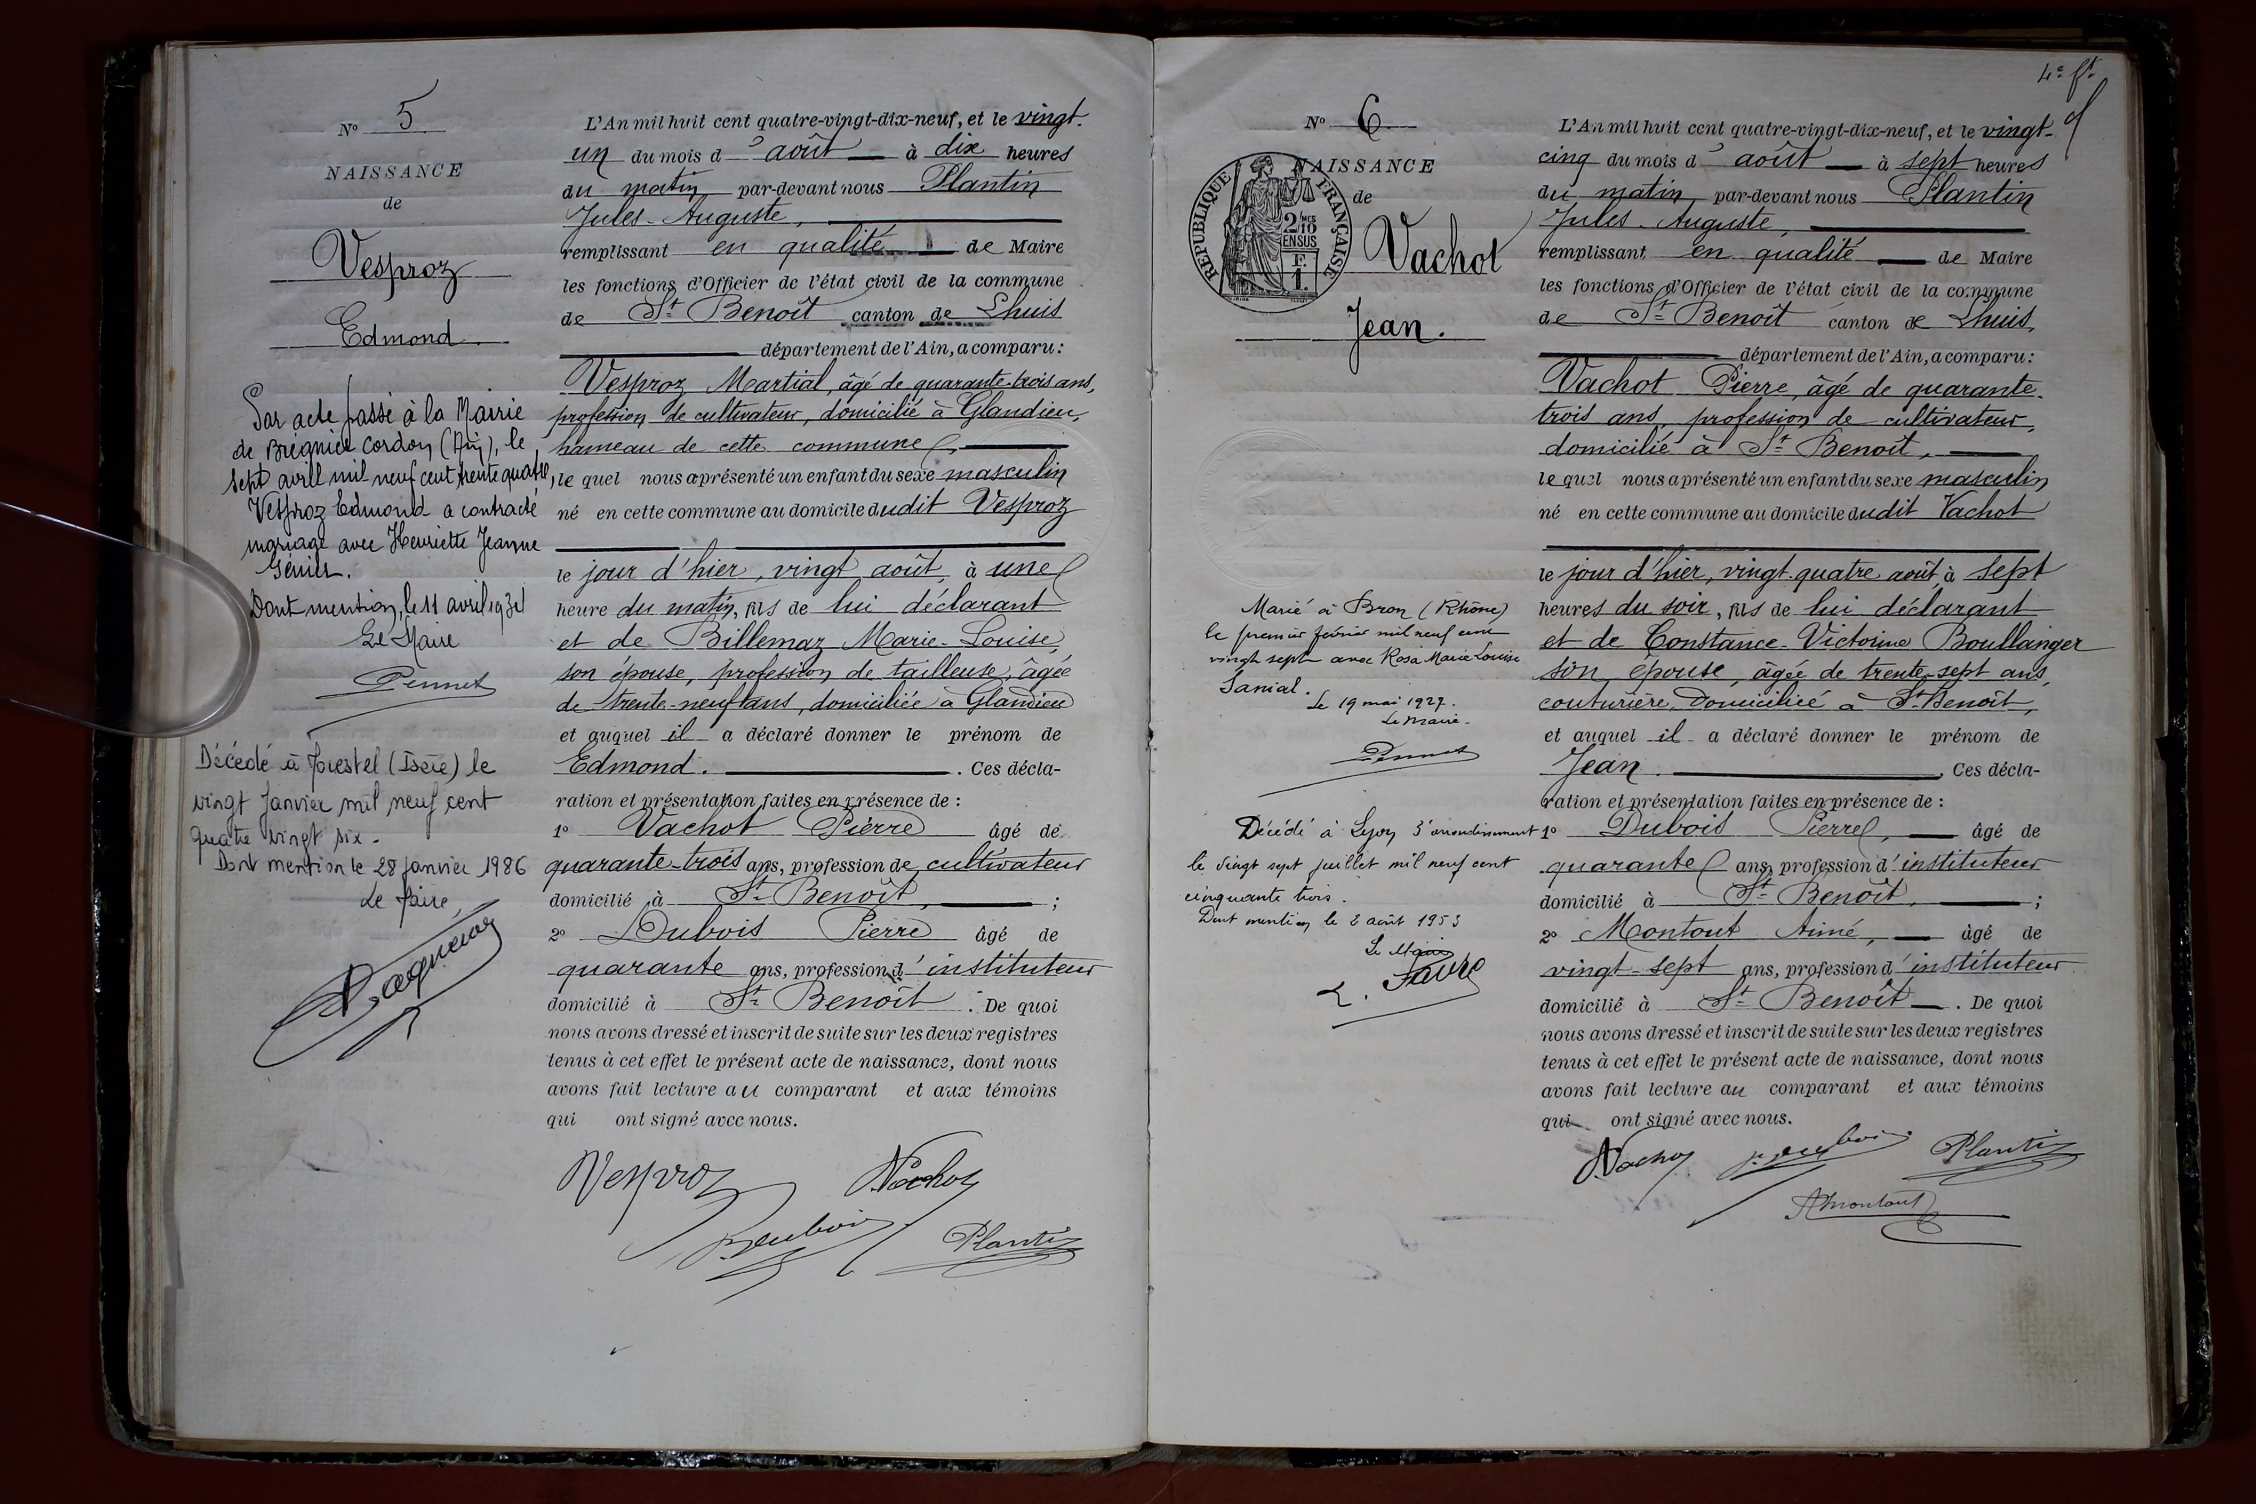 N° 5
NAISSANCE
de
Vesproz
Edmond.
Par acte passé à la Mairie
de Brégnier Cordon (Ain), le
sept avril mil neuf cent trente quatre,
Vesproz Edmond a contracté
mariage avec Henriette Jeanne
Génier.
Dont mention, le 11 avril 1934
Le Maire
Pennet
Décédé à Morestel (Isère) le
vingt Janvier mil neuf cent
quatre vingt six.
Dont mention le 28 Janvier 1986
Le Maire,
L'An mil huit cent quatre-vingt-dix-neuf, et le vingt-
un du mois d'août à dix heures
du matin, par-devant nous Plantin
Jules-Auguste,
remplissant en qualité de Maire
les fonctions d'Officier de l'état civil de la commune
de St Benoît canton de Lhuis
département de l'Ain, a comparu:
Vesproz Martial, âgé de quarante-trois ans,
profession de cultivateur, domicilié à Glandieu,
hameau de cette commune,
le quel nous a présenté un enfant du sexe masculin
né en cette commune au domicile dudit Vesproz
le jour d'hier, vingt août, à une
heure du matin, fils de lui déclarant
et de Billemaz Marie-Louise,
son épouse, profession de tailleuse, âgée
de trente-neuf ans, domiciliée à Glandieu
et auquel il a déclaré donner le prénom de
Edmond. . Ces décla-
ration et présentation faites en présence de :
1° Vachot Pierre âgé de
quarante-trois ans, profession de cultivateur
domicilié à St Benoît, ;
2° Dubois Pierre âgé de
quarante ans, profession d'instituteur
domicilié à St Benoît . De quoi
nous avons dressé et inscrit de suite sur les deux registres
tenus à cet effet le présent acte de naissance, dont nous
avons fait lecture au comparant et aux témoins
qui ont signé avec nous.
Vesproz Vachot
P. Dubois Plantin
4e ft
N° 6
NAISSANCE
de
RÉPUBLIQUE FRANÇAISE
2/10 MES
EN SUS
F.
1.
Vachot
Jean.
Marié à Bron (Rhône)
le premier février mil neuf cent
vingt sept avec Rosa Marie Louise
Sanial.
Le 19 mai 1927.
Le Maire.
Pennet
Décédé à Lyon 3e arrondissement
le vingt sept juillet mil neuf cent
cinquante trois.
Dont mention le 2 août 1953
Le Maire
L. Favre
L'An mil huit cent quatre-vingt-dix-neuf, et le vingt-
cinq du mois d'août à sept heures
du matin, par-devant nous Plantin
Jules-Auguste,
remplissant en qualité de Maire
les fonctions d'Officier de l'état civil de la commune
de St Benoît canton de Lhuis,
département de l'Ain, a comparu:
Vachot Pierre, âgé de quarante-
trois ans, profession de cultivateur,
domicilié à St Benoît,
le quel nous a présenté un enfant du sexe masculin
né en cette commune au domicile dudit Vachot
le jour d'hier, vingt-quatre août, à sept
heures du soir, fils de lui déclarant
et de Constance-Victorine Boullanger
son épouse, âgée de trente-sept ans,
couturière, domiciliée à St Benoît,
et auquel il a déclaré donner le prénom de
Jean. . Ces décla-
ration et présentation faites en présence de :
1° Dubois Pierre, âgé de
quarante ans, profession d'instituteur
domicilié à St Benoît, ;
2° Montout Aimé, âgé de
vingt-sept ans, profession d'instituteur
domicilié à St Benoît . De quoi
nous avons dressé et inscrit de suite sur les deux registres
tenus à cet effet le présent acte de naissance, dont nous
avons fait lecture au comparant et aux témoins
qui ont signé avec nous.
Vachot P. Dubois Plantin
A Montout